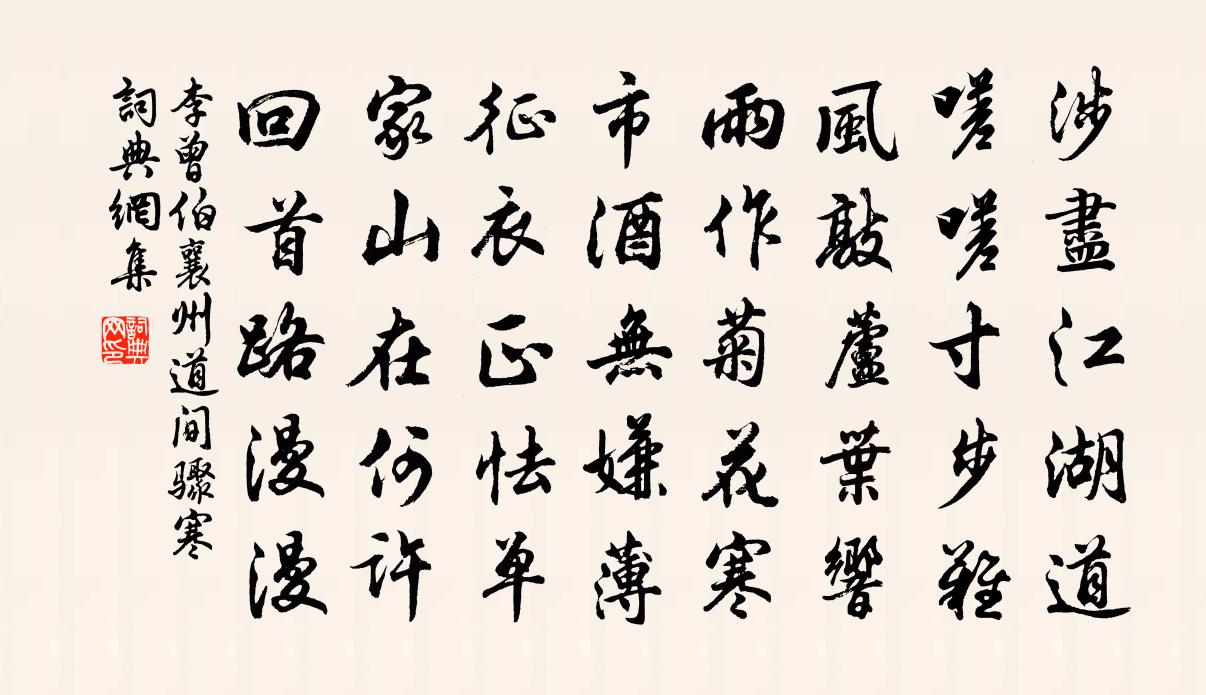 涉盡江湖道
嗟嗟寸步難
風敲蘆葉響
雨作菊花寒
市酒無嫌薄
征衣正怯单
家山在何許
回首路漫漫
李曾伯襄州道间骤寒
詞典網集
詞典网印